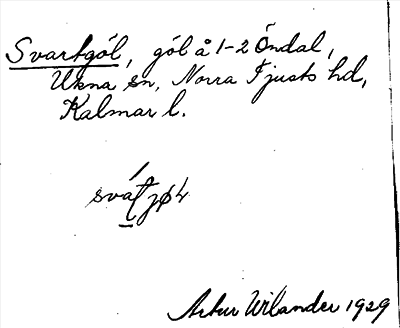 Svartgöl, göl å 1-2 Öndal,
Ukna sn, Norra Tjusts hd,
Kalmar l.
Artur Wilander 1929